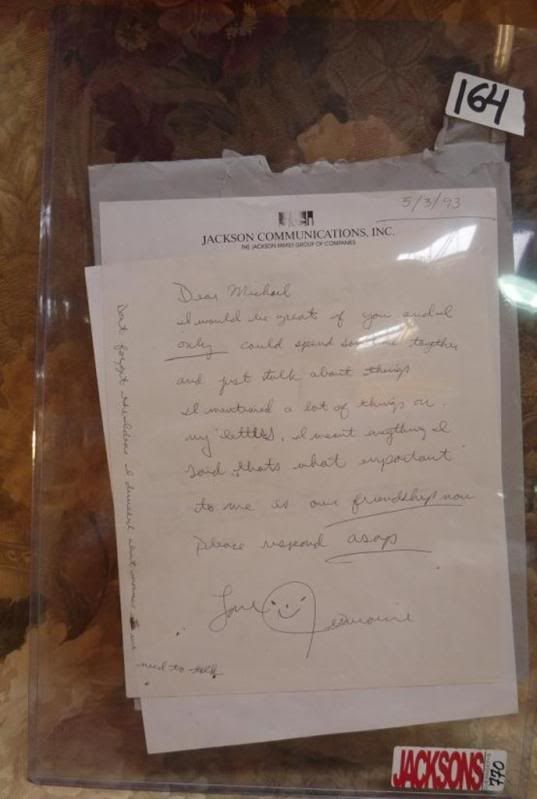 164
5/3/93
JACKSON COMMUNICATIONS, INC.
THE JACKSON FAMILY GROUP OF COMPANIES
Dear Michael
It would be great if you and I
only could spend some time together
and just talk about things
I mentioned a lot of things on
my letters, I meant everything I
said thats what important
to me is our friendship now
Please respond asap
Love Jermaine
Dont forget the ideas I
need to talk
JACKSONS
770